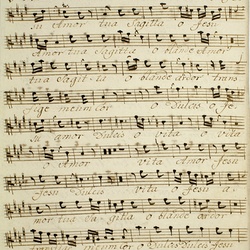 su Amor tua Sagitta o Jesu
Amor tua Sagitta o blande Amor
tua Sagitta o blande ardor trans
ige meum Cor o Dulcis o Je
su amor Dulcis o vita o vita
Amor vita Amor Jesu
Jesu Dulcis vita o Jesu a
mor tua Sagitta o blande ardor
meum Cor o Dulcis Dulcis Jesu